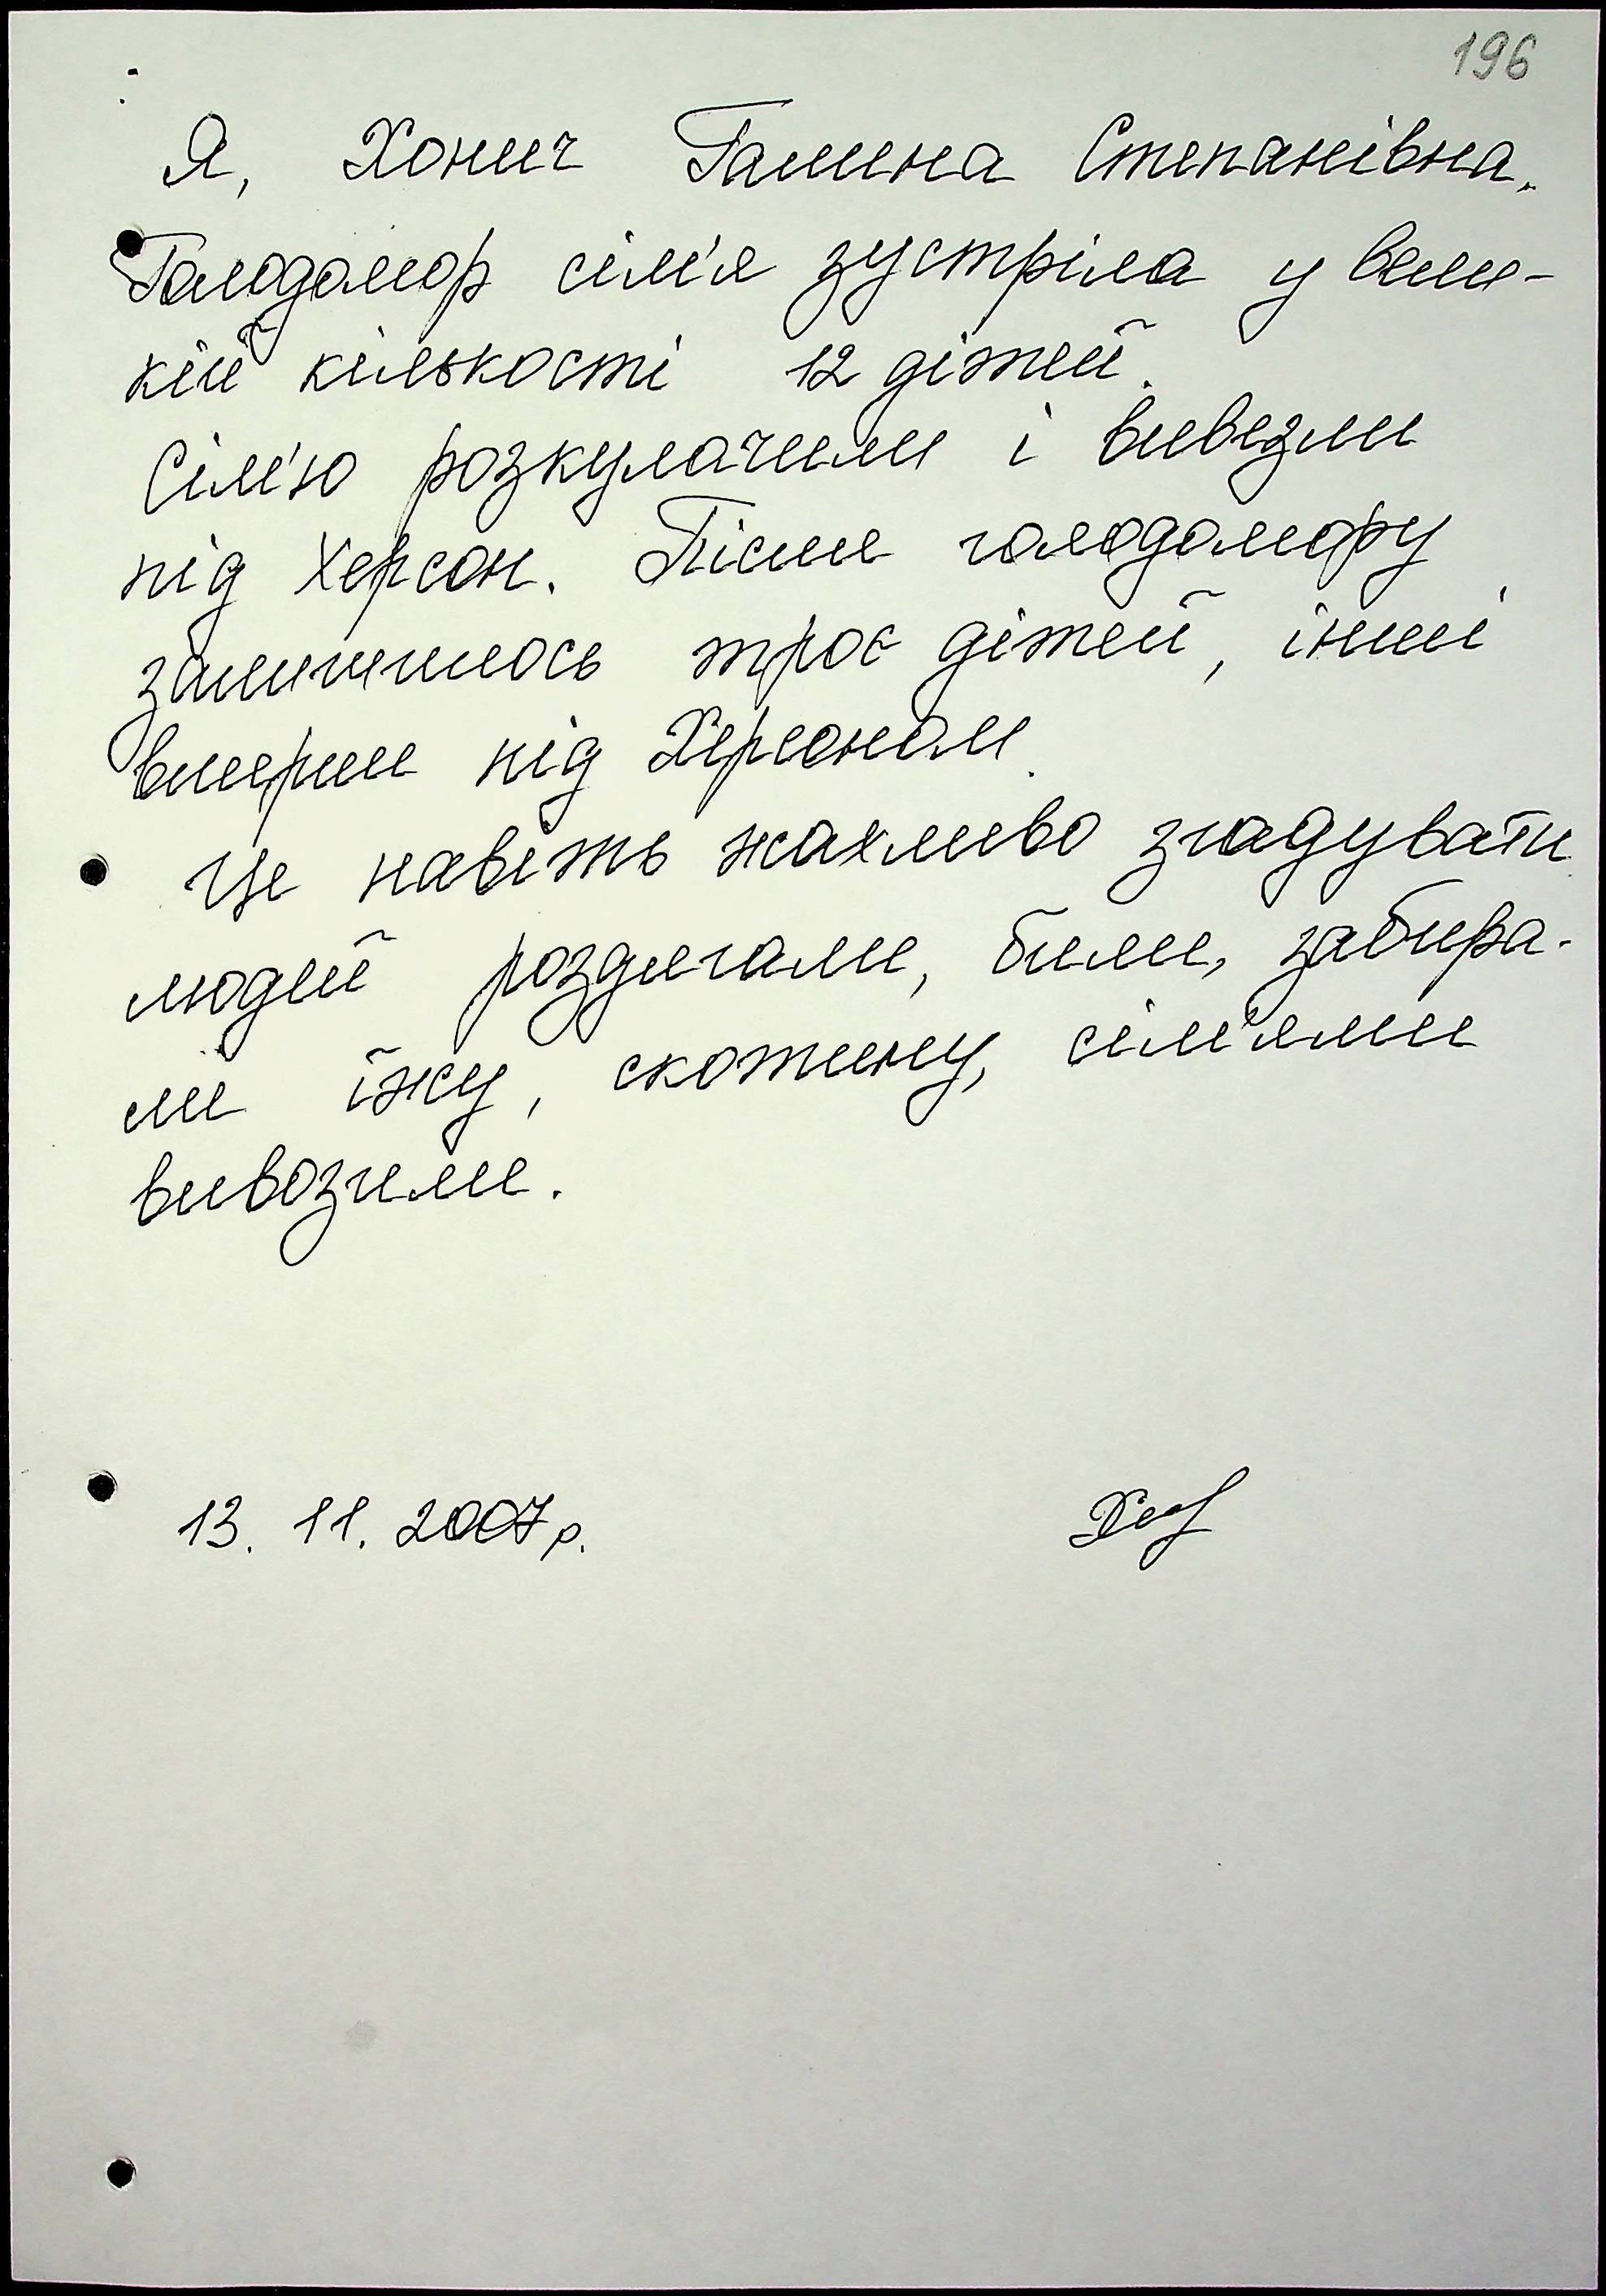 196
Я, Хонич Галина Степанівна.
Голодомор сім'я зустріла у вели-
кій кількості 12 дітей.
Сім'ю розкулачили і вивезли
під Херсон. Після голодомору
залишилось троє дітей, інші
вмерли під Херсоном.
Це навіть жахливо згадувати
людей роздягали, били, забира-
ли їжу, скотину, сім'ями
вивозили.
13. 11. 2007 р.